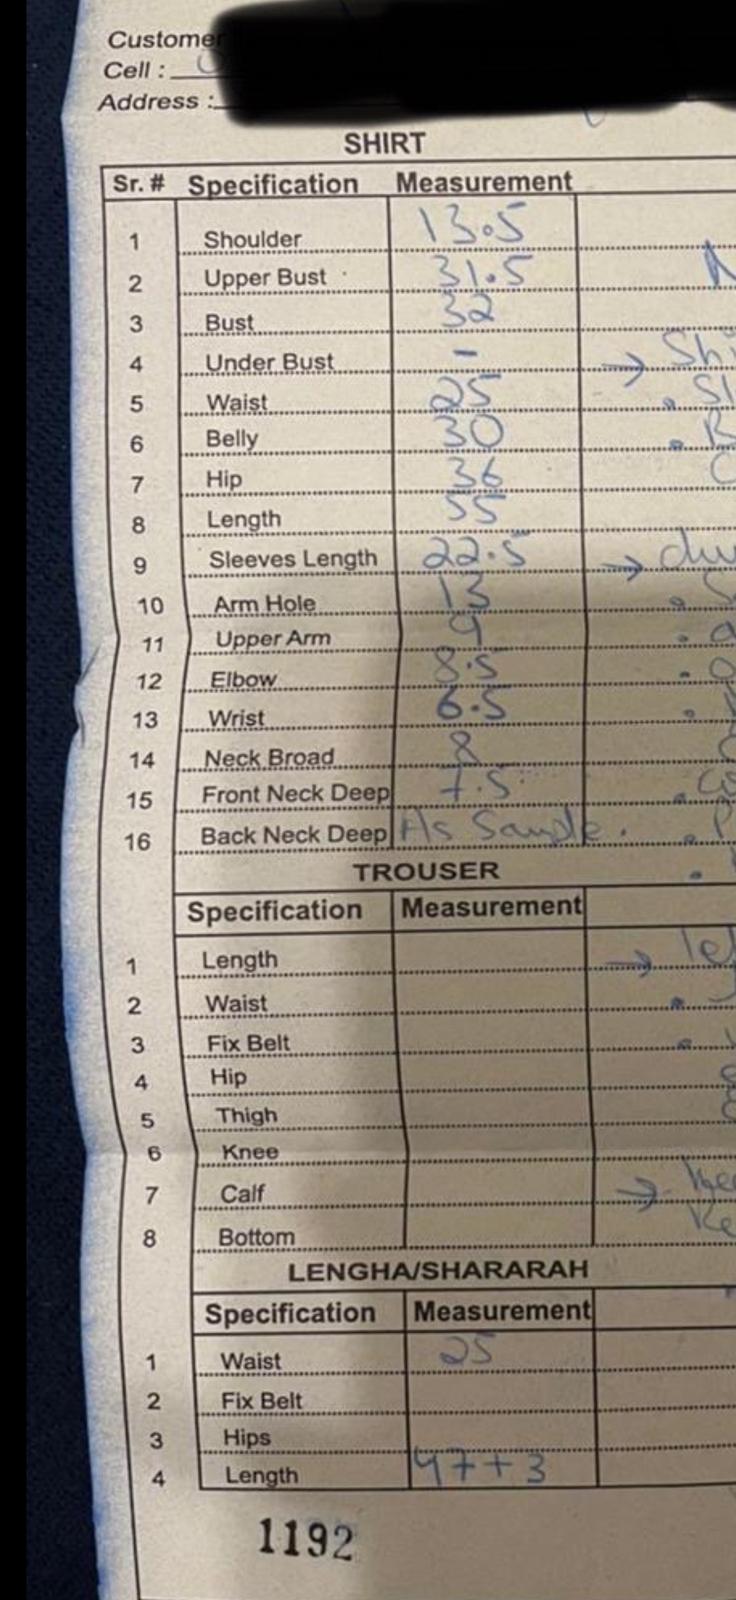 Customer
Cell :
Address :
SHIRT
Sr. # Specification Measurement
1 Shoulder 13.5
2 Upper Bust 31.5
3 Bust 32
4 Under Bust - →
5 Waist 25
6 Belly 30
7 Hip 36
8 Length 55
9 Sleeves Length 22.5 →
10 Arm Hole 13
11 Upper Arm 9
12 Elbow 8.5
13 Wrist 6.5
14 Neck Broad 8
15 Front Neck Deep 7.5
16 Back Neck Deep As Sample.
TROUSER
Specification Measurement
1 Length →
2 Waist
3 Fix Belt
4 Hip
5 Thigh
6 Knee
7 Calf →
8 Bottom
LENGHA/SHARARAH
Specification Measurement
1 Waist 25
2 Fix Belt
3 Hips
4 Length 47+3
1192